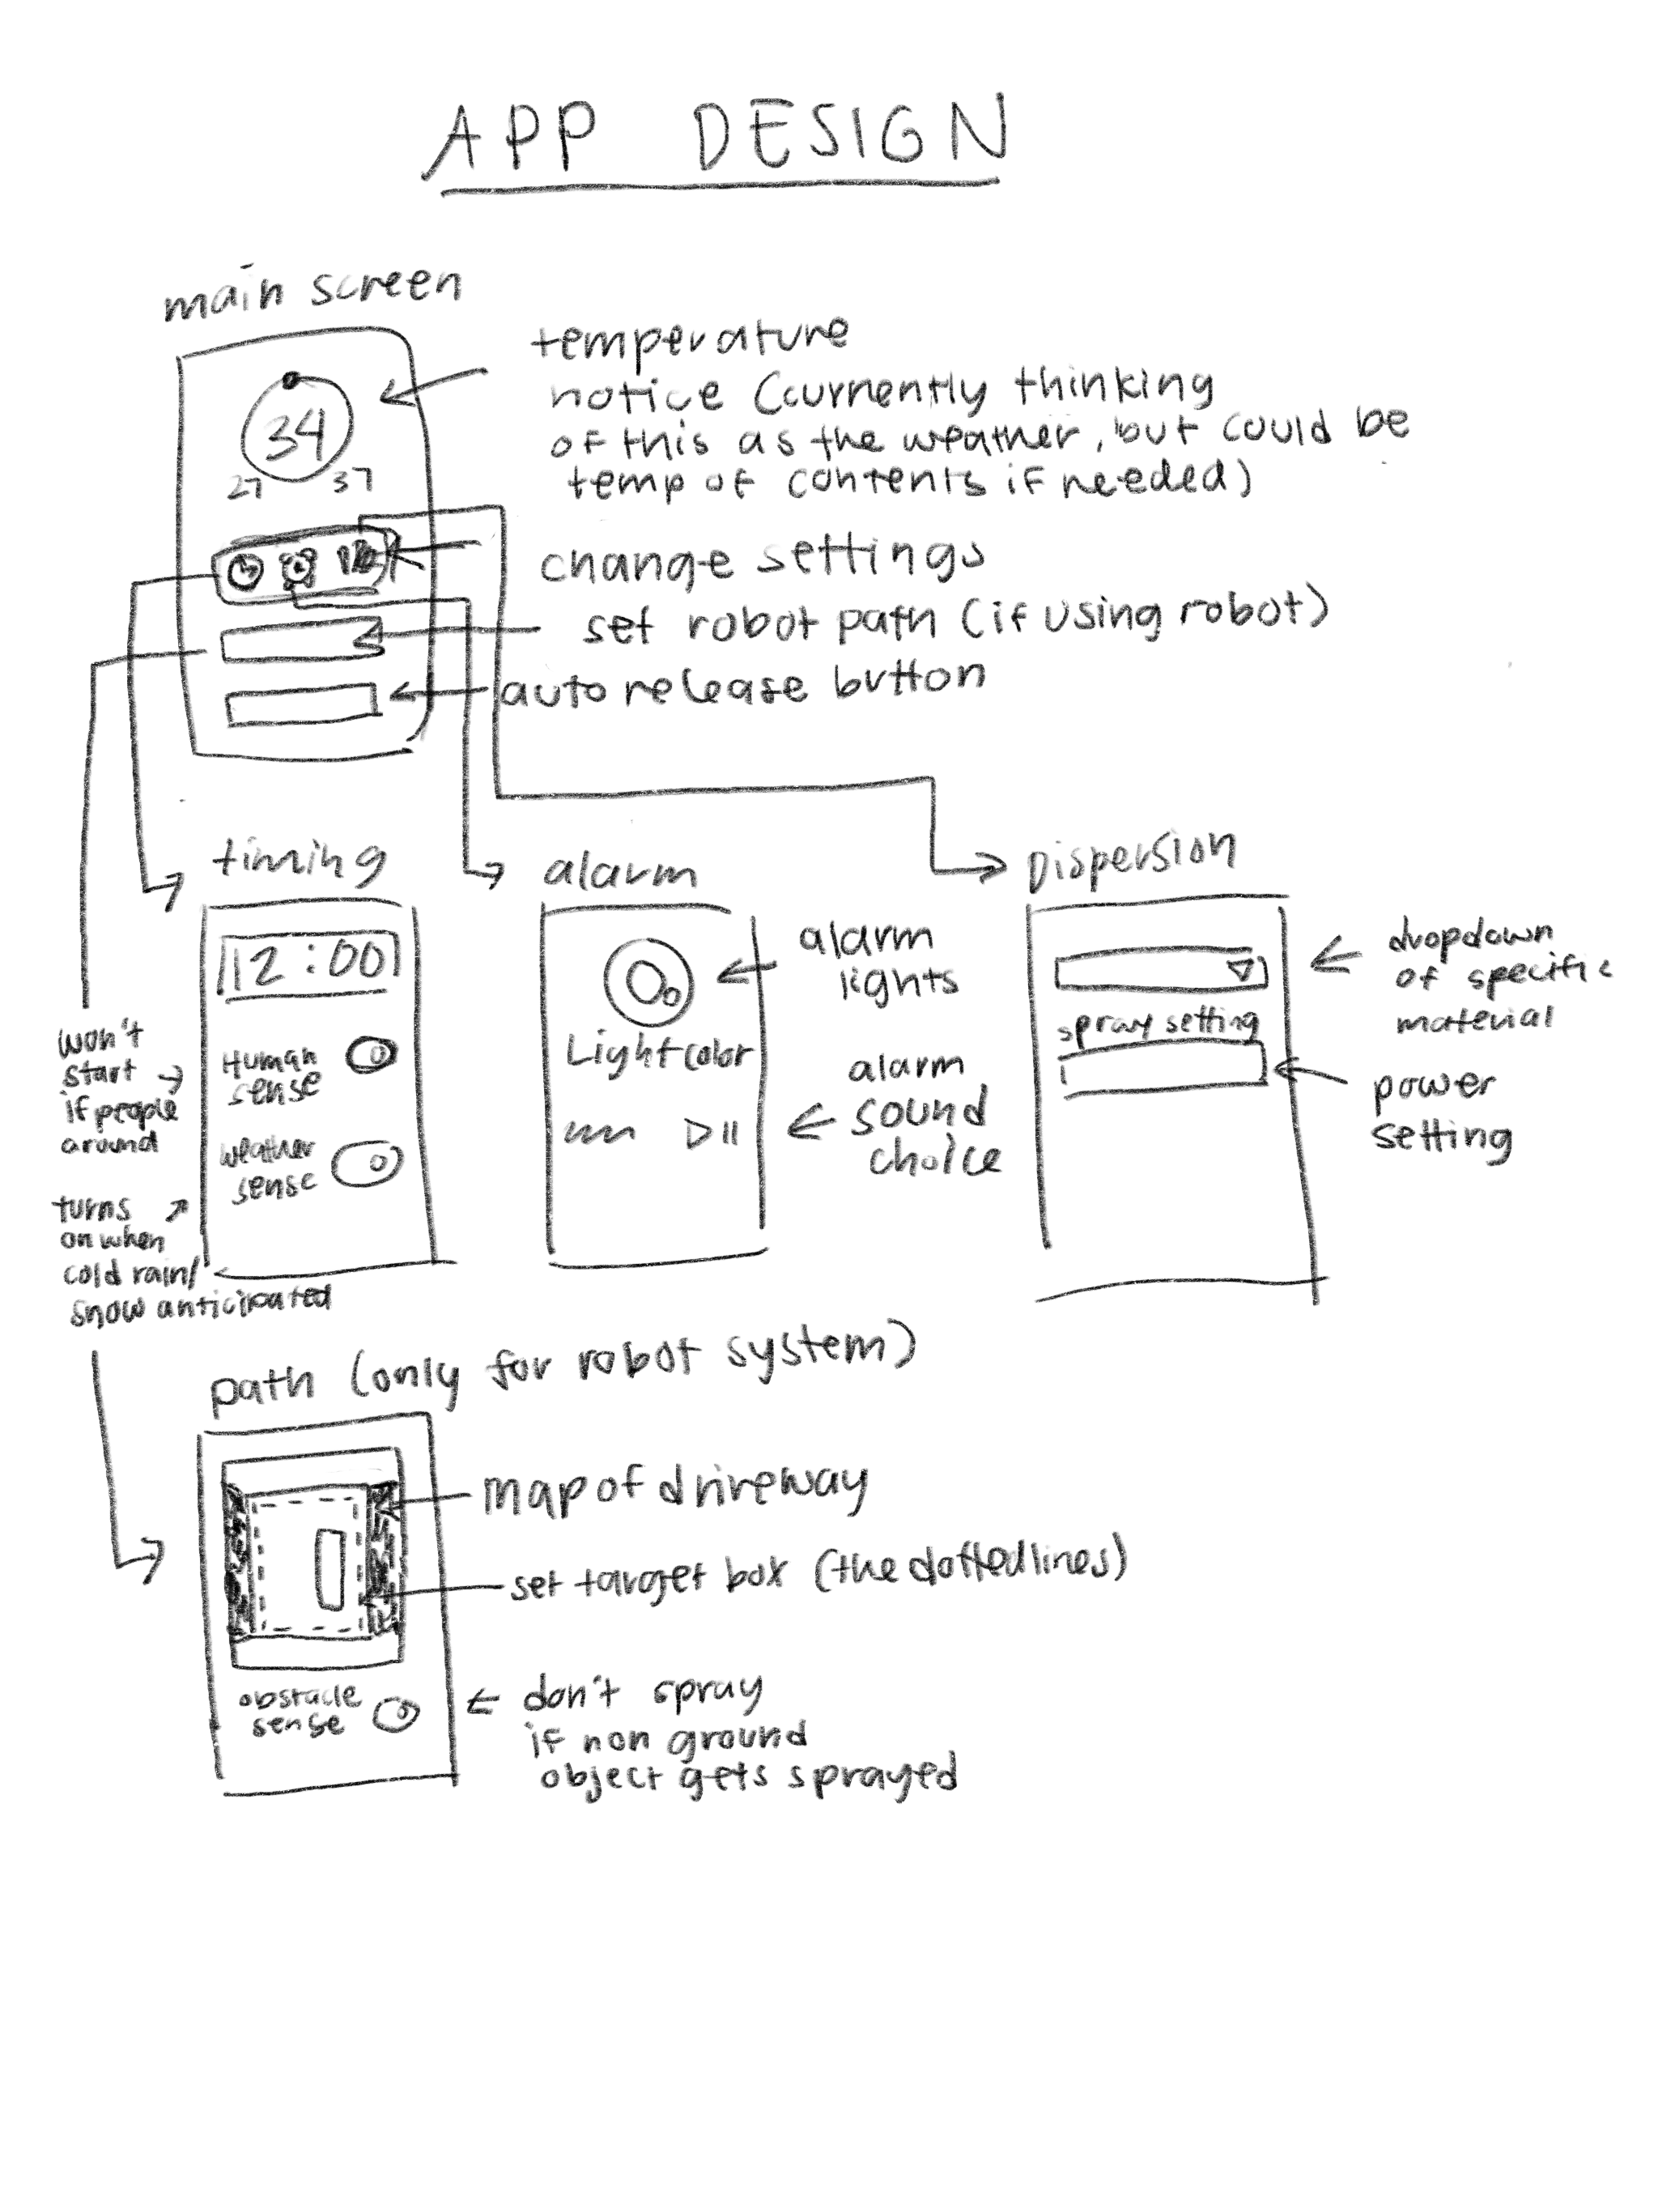 APP DESIGN
main screen
temperature
notice (currently thinking
of this as the weather, but could be
temp of contents if needed)
34
27 37
change settings
set robot path (if using robot)
auto release button
timing
12:00
Human
sense
weather
sense
won't
start
if people
around
turns
on when
cold rain/
snow anticipated
alarm
Light color
alarm
lights
alarm
sound
choice
Dispersion
spray setting
dropdown
of specific
material
power
setting
path (only for robot system)
map of driveway
set target box (the dotted lines)
obstacle
sense
don't spray
if non ground
object gets sprayed